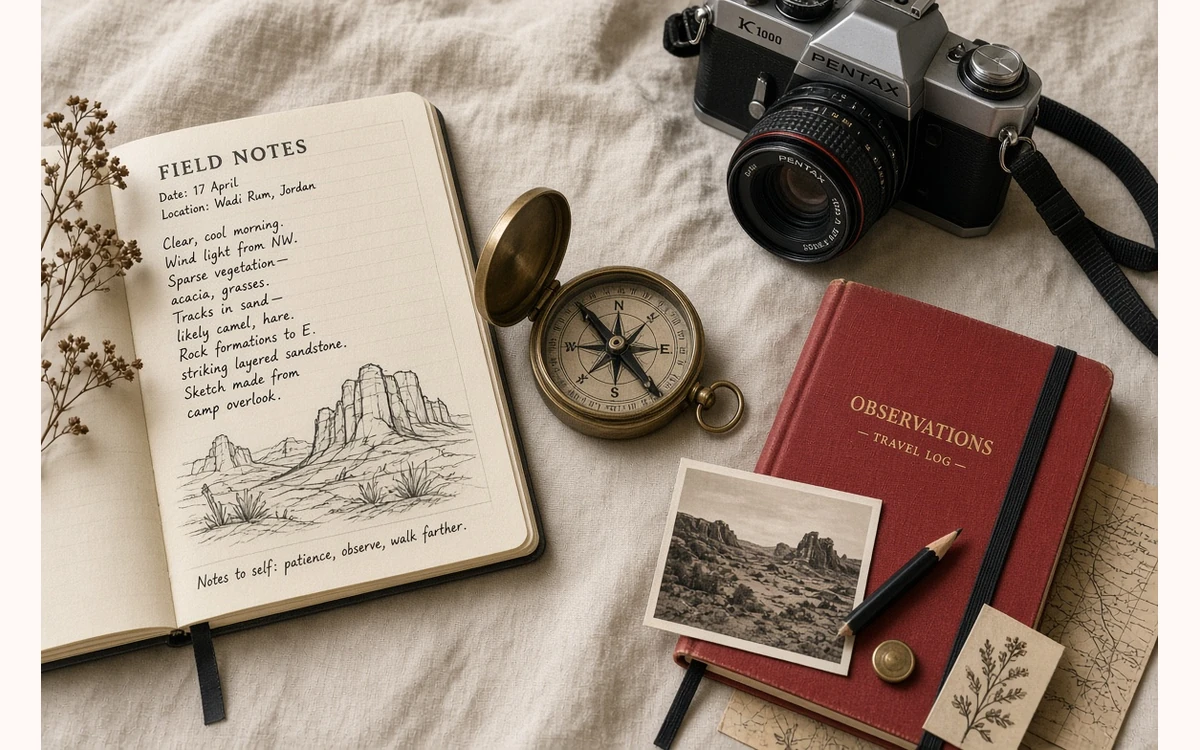 FIELD NOTES
Date: 17 April
Location: Wadi Rum, Jordan
Clear, cool morning.
Wind light from NW.
Sparse vegetation—
acacia, grasses.
Tracks in sand—
likely camel, hare.
Rock formations to E.
striking layered sandstone.
Sketch made from
camp overlook.
Notes to self: patience, observe, walk farther.
N
E
S
W
K1000
PENTAX
PENTAX
OBSERVATIONS
— TRAVEL LOG —